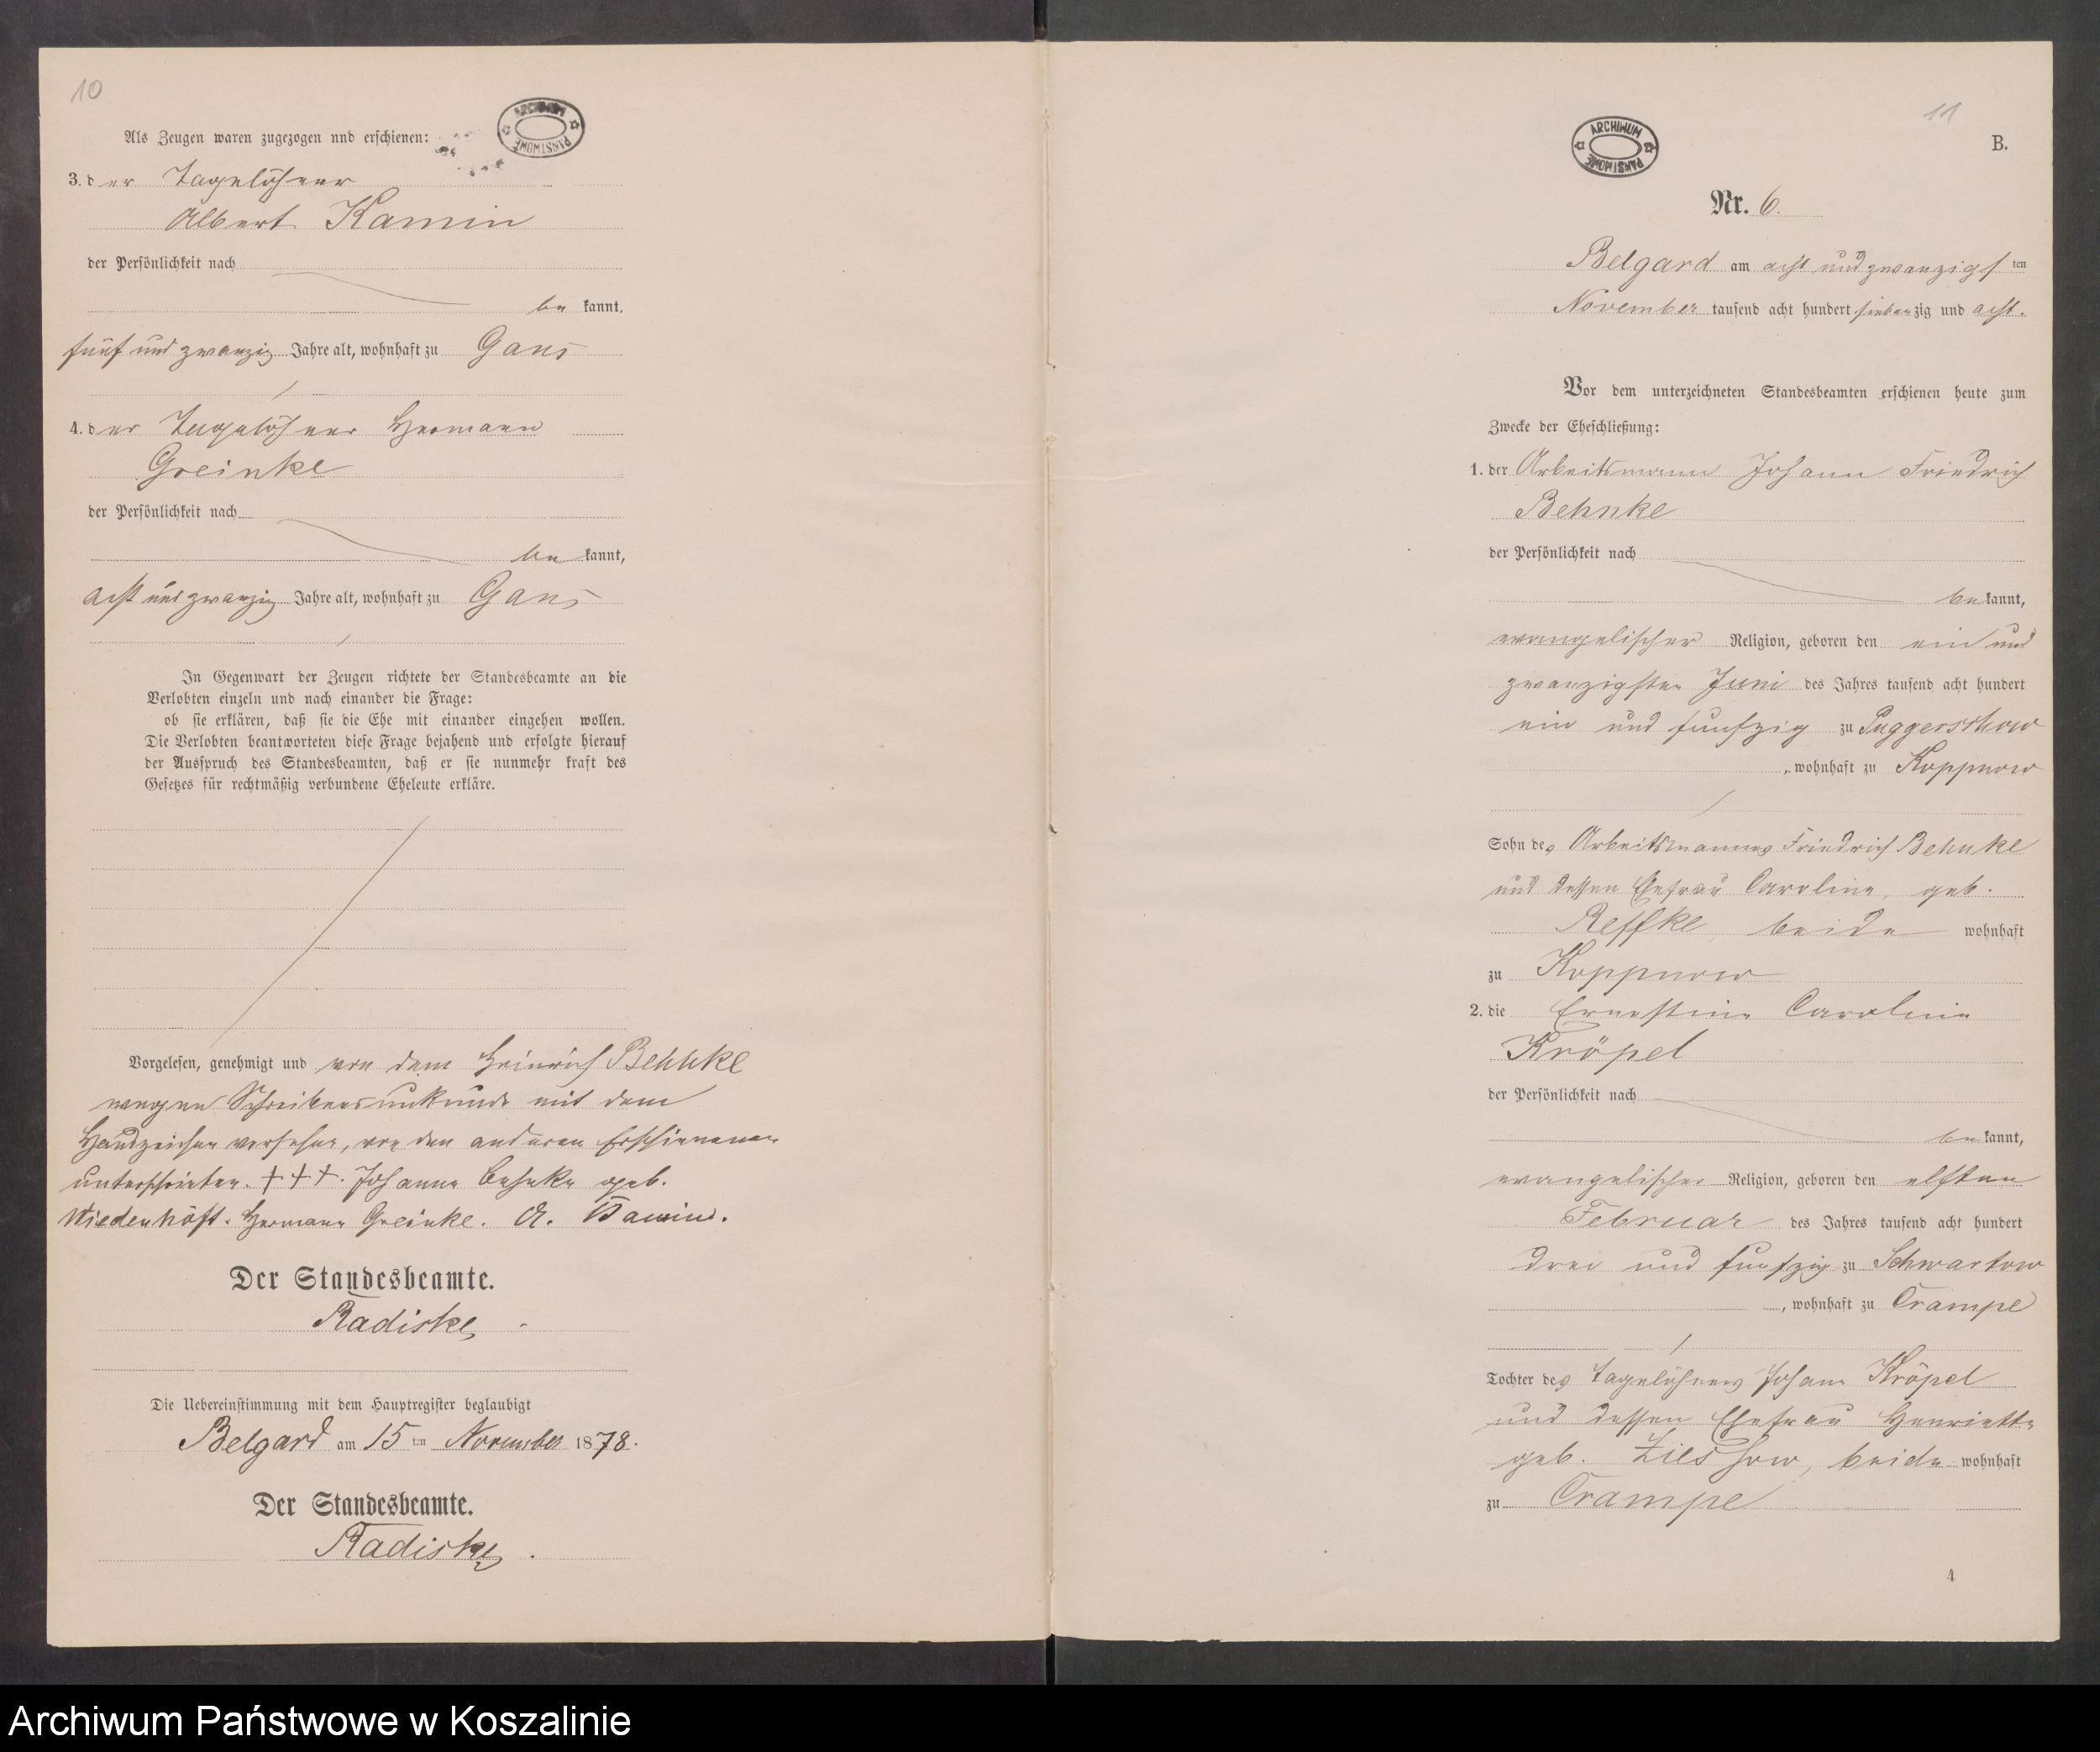 10
ARCHIWUM PAŃSTWOWE
Als Zeugen waren zugezogen nnd erschienen:
3. der Tagelöhner
Albert Kamin
der Persönlichkeit nach
be kannt,
fünf und zwanzig Jahre alt, wohnhaft zu Gans
4. der Tagelöhner Hermann
Greinke
der Persönlichkeit nach
be kannt,
acht und zwanzig Jahre alt, wohnhaft zu Gans
In Gegenwart der Zeugen richtete der Standesbeamte an die
Verlobten einzeln und nach einander die Frage:
ob sie erklären, daß sie die Ehe mit einander eingehen wollen.
Die Verlobten beantworteten diese Frage bejahend und erfolgte hierauf
der Ausspruch des Standesbeamten, daß er sie nunmehr kraft des
Gesetzes für rechtmäßig verbundene Eheleute erkläre.
Vorgelesen, genehmigt und von dem Heinrich Behnke
wegen Schreibensunkunde mit dem
Handzeichen versehen, von den anderen Erschienenen
unterschrieben. +++. Johanne Behnke geb.
Wiedenhöft. Hermann Greinke. A. Kamin.
Der Standesbeamte.
Radiske
Die Uebereinstimmung mit dem Hauptregister beglaubigt
Belgard am 15 ten November 1878.
Der Standesbeamte.
Radiske.
11
ARCHIWUM PAŃSTWOWE
B.
Nr. 6.
Belgard am acht und zwanzigsten
November tausend acht hundert siebenzig und acht.
Vor dem unterzeichneten Standesbeamten erschienen heute zum
Zwecke der Eheschließung:
1. der Arbeitsmann Johann Friedrich
Behnke
der Persönlichkeit nach
be kannt,
evangelischer Religion, geboren den ein und
zwanzigsten Juni des Jahres tausend acht hundert
ein und funfzig zu Puggerschow
, wohnhaft zu Koppnow
Sohn des Arbeitsmannes Friedrich Behnke
und dessen Ehefrau Caroline, geb.
Reffke, beide wohnhaft
zu Koppnow
2. die Ernestine Caroline
Kröpel
der Persönlichkeit nach
be kannt,
evangelischer Religion, geboren den elften
Februar des Jahres tausend acht hundert
drei und funfzig zu Schwartow
, wohnhaft zu Crampe
Tochter des Tagelöhners Johann Kröpel
und dessen Ehefrau Henriette
geb. beide wohnhaft
zu Crampe
4
Archiwum Państwowe w Koszalinie